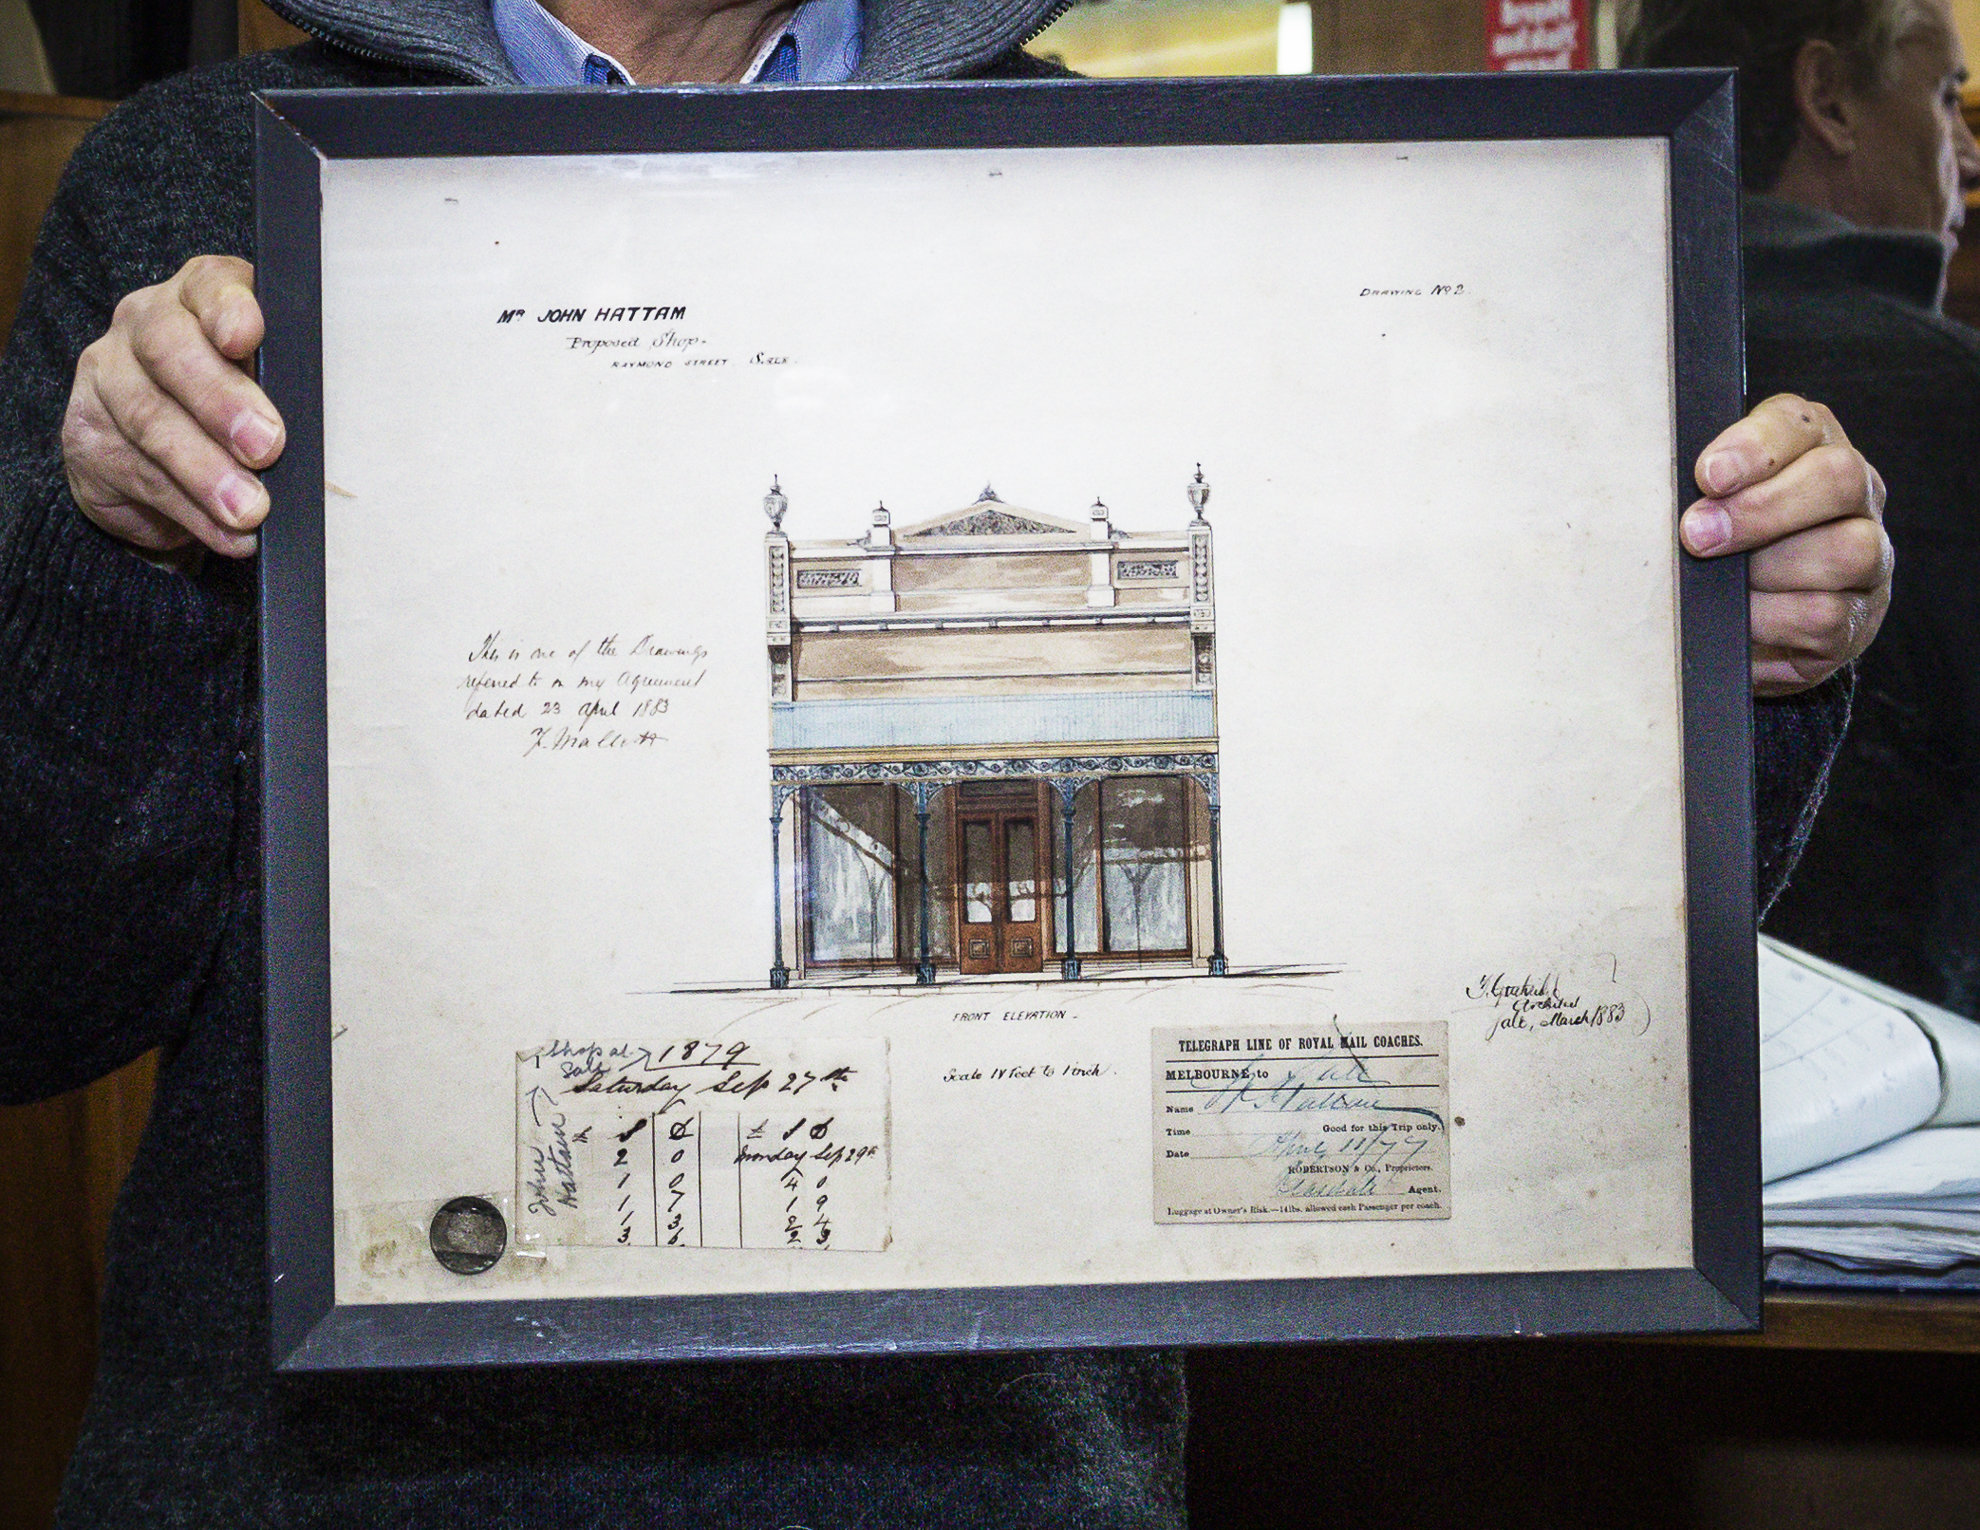 MR JOHN HATTAM
Proposed Shop-
RAYMOND STREET. SALE.
DRAWING No 2.
This is one of the Drawings
referred to in my Agreement
dated 23 April 1883
FRONT ELEVATION -
Architect
Sale, March 1883
Shop at
Sale
1879
Saturday Sep 27th
John
Hattam
£
Monday Sep 29th
2 0
1 0 4 0
1 7 1 9
1 3 2 4
3 6 2 3
Scale 4 feet to 1 inch.
TELEGRAPH LINE OF ROYAL MAIL COACHES.
MELBOURNE to Sale
Name Hattam
Time Good for this Trip only.
Date
ROBERTSON & Co., Proprietors.
Agent.
Luggage at Owner's Risk.—14lbs. allowed each Passenger per coach.